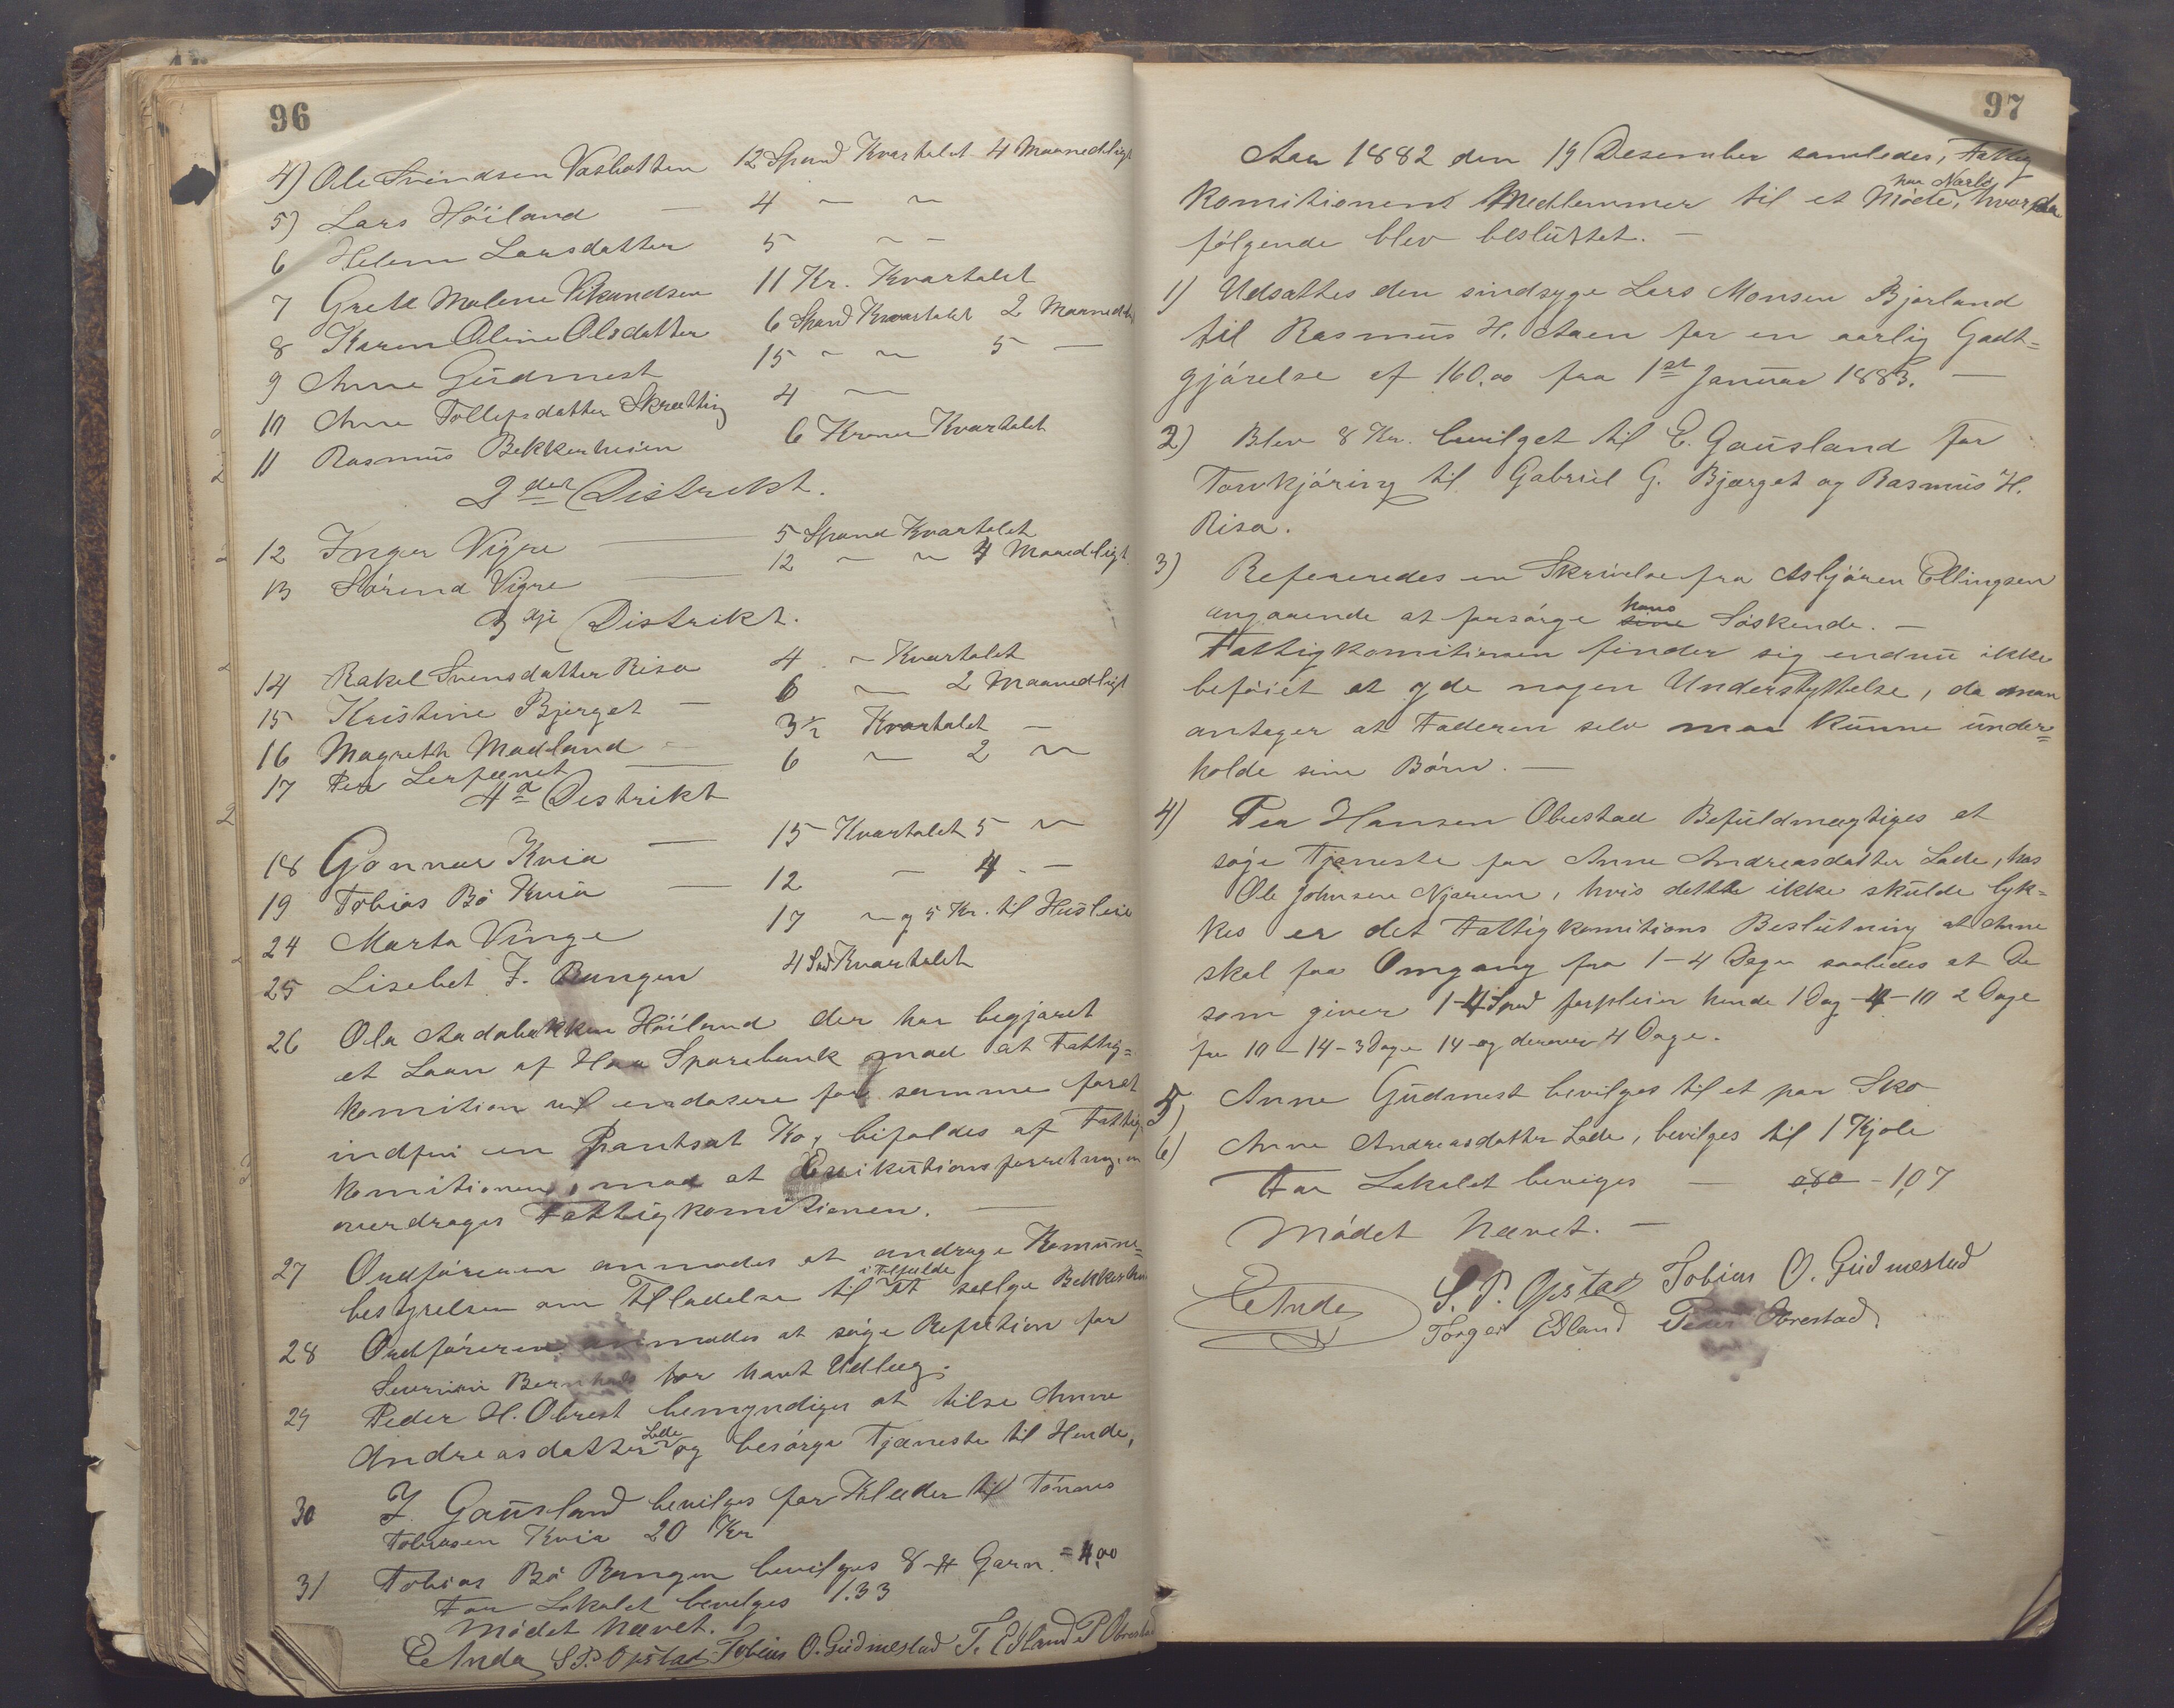 96
4) Ole Svendsen Vasbotten 12 Spand Kvartalet 4 Maanedligt
5) Lars Höiland — 4 ~ ~
6 Helene Larsdatter 5 ~ ~
7 Grete Malene Vikandsen 11 Kr. Kvartalet
8 Karen Oline Olsdatter 6 Spand Kvartalet 2 Maanedligt
9 Anne Gudmest 15 ~ ~ 5 —
10 Anne Tollefsdatter Skrætting 4 ~
11 Rasmus Bekkerheien 6 Kroner Kvartalet
2den Distrikt.
12 Inger Vigre — 5 Spand Kvartalet
13 Sörina Vigre — 12 ~ ~ 4 Maanedligt
3dje Distrikt.
14 Rakel Svensdatter Risa 4 ~ Kvartalet
15 Kristine Bjerget — 6 ~ 2 Maanedligt
16 Magreth Madland — 3½ Kvartalet —
17 Per Lerpeenet — 6 ~ 2 ~
4de Destrikt
18 Gonnar Kvia — 15 Kvartalet 5 ~
19 Tobias Bö Kvia — 12 ~ 4 —
24 Marta Vinge 17 ~ og 5 Kr. til Husleie
25 Lisebet J. Bungen 4 Spd Kvartalet
26 Ola Aadabakken Höiland der har begjæret
et Laan af Haa Sparebank mod at Fattig=
komition vil endosere for samme forat
indfri en Pantsat Ko, bifaldes af Fattig
komitionen, mod at Exikutionsforretningen
overdrages Fattigkomitionen. —
27 Ordföreren anmodes at andrage Komune=
bestyrelsen om Tilladelse til i Tilfælde at sælge Bekkerhei
28 Ordföreren anmodes at söge Refution for
Severine Bernhards for havt Udlæg.
29 Peder H. Obrest bemyndiges at tilse Anne
Andreasdatter Lode og besörge Tjæneste til Hende,
30 J. Gausland bevilges for Klæder til Tönnes
Tobiasen Kvia 20 Kr
31 Tobias Bö Bungen bevilges 8 ℔ Garn. = 4,00
For Lokalet bevilges 1.33
Mödet hævet.
E Anda S. P. Opstad Tobias O. Gudmestad T. Edland P Obrestad
97
Aar 1882 den 19 Desember samledes, Fattig
komitionens Medlemmer til et Möde, paa Narbö hvorpaa
fölgende blev besluttet. —
1) Udsattes den sindsyge Lars Monsen Bjorland
til Rasmus H. Aaen for en aarlig Godt=
gjörelse af 160,00 fra 1st Januar 1883. —
2) Blev 8 Kr. bevilget til E. Gausland for
Torvkjöring til Gabriel G. Bjærget og Rasmus H.
Risa.
3) Refereredes en Skrivelse fra Asbjören Ellingsen
angaaende at forsörge sine hans Söskende. —
Fattigkomitionen finder sig endnu ikke
beföiet at yde nogen Understyttelse, da man
antager at Faderen selv maa kunne under=
holde sine Börn. —
4) Per Hansen Obrestad Befuldmægtiges at
söge Tjæneste for Anne Andreasdatter Lode, hos
Ole Johnsen Njærem, hvis dette ikke skulde lyk=
kes er det Fattigkomitions Beslutning at Anne
skal faa Omgang fra 1–4 Dage saaledes at De
som giver 1–4 Spd forpleier hende 1 Dag –4–10 2 Dage
fra 10–14–3 Dage 14 og derover 4 Dage.
5) Anne Gudmest bevilges til et par Sko
6) Anne Andreasdatter Lode, bevilges til 1 Kjole
For Lokalet beviges — 0,80 – 1,07
Mödet hævet. —
E Anda S. P. Opstad Tobias O. Gudmestad
Torger Edland Peder Obrestad